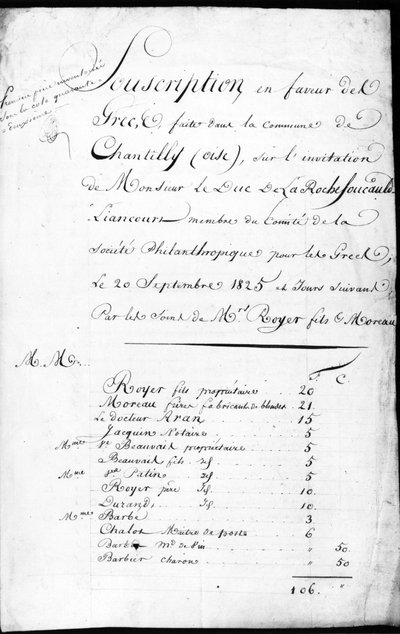 Souscription, en faveur des
Grecs, faite dans la Commune de
Chantilly (Oise), sur l'invitation
de Monsieur Le Duc De La Rochefoucauld
Liancourt membre du Comité de la
Société Philanthropique pour les Grecs,
Le 20 Septembre 1825 et Jours Suivant
Par les Soins de Mrs Royer fils & Moreau
M. M.
F. C.
Royer fils propriétaire 20
Moreau frères fabricants de blondes 21
Le docteur Aran 15
Jacquin Notaire 5
Mme Ve Beauvais propriétaire 5
Beauvais fils id 5
Mme Ve Patin id 5
Royer père id 10
Durand id 10
Mme Barbé 3
Chalot Maître de poste 6
Barbé md de vin " 50
Barbier charon " 50
106. "